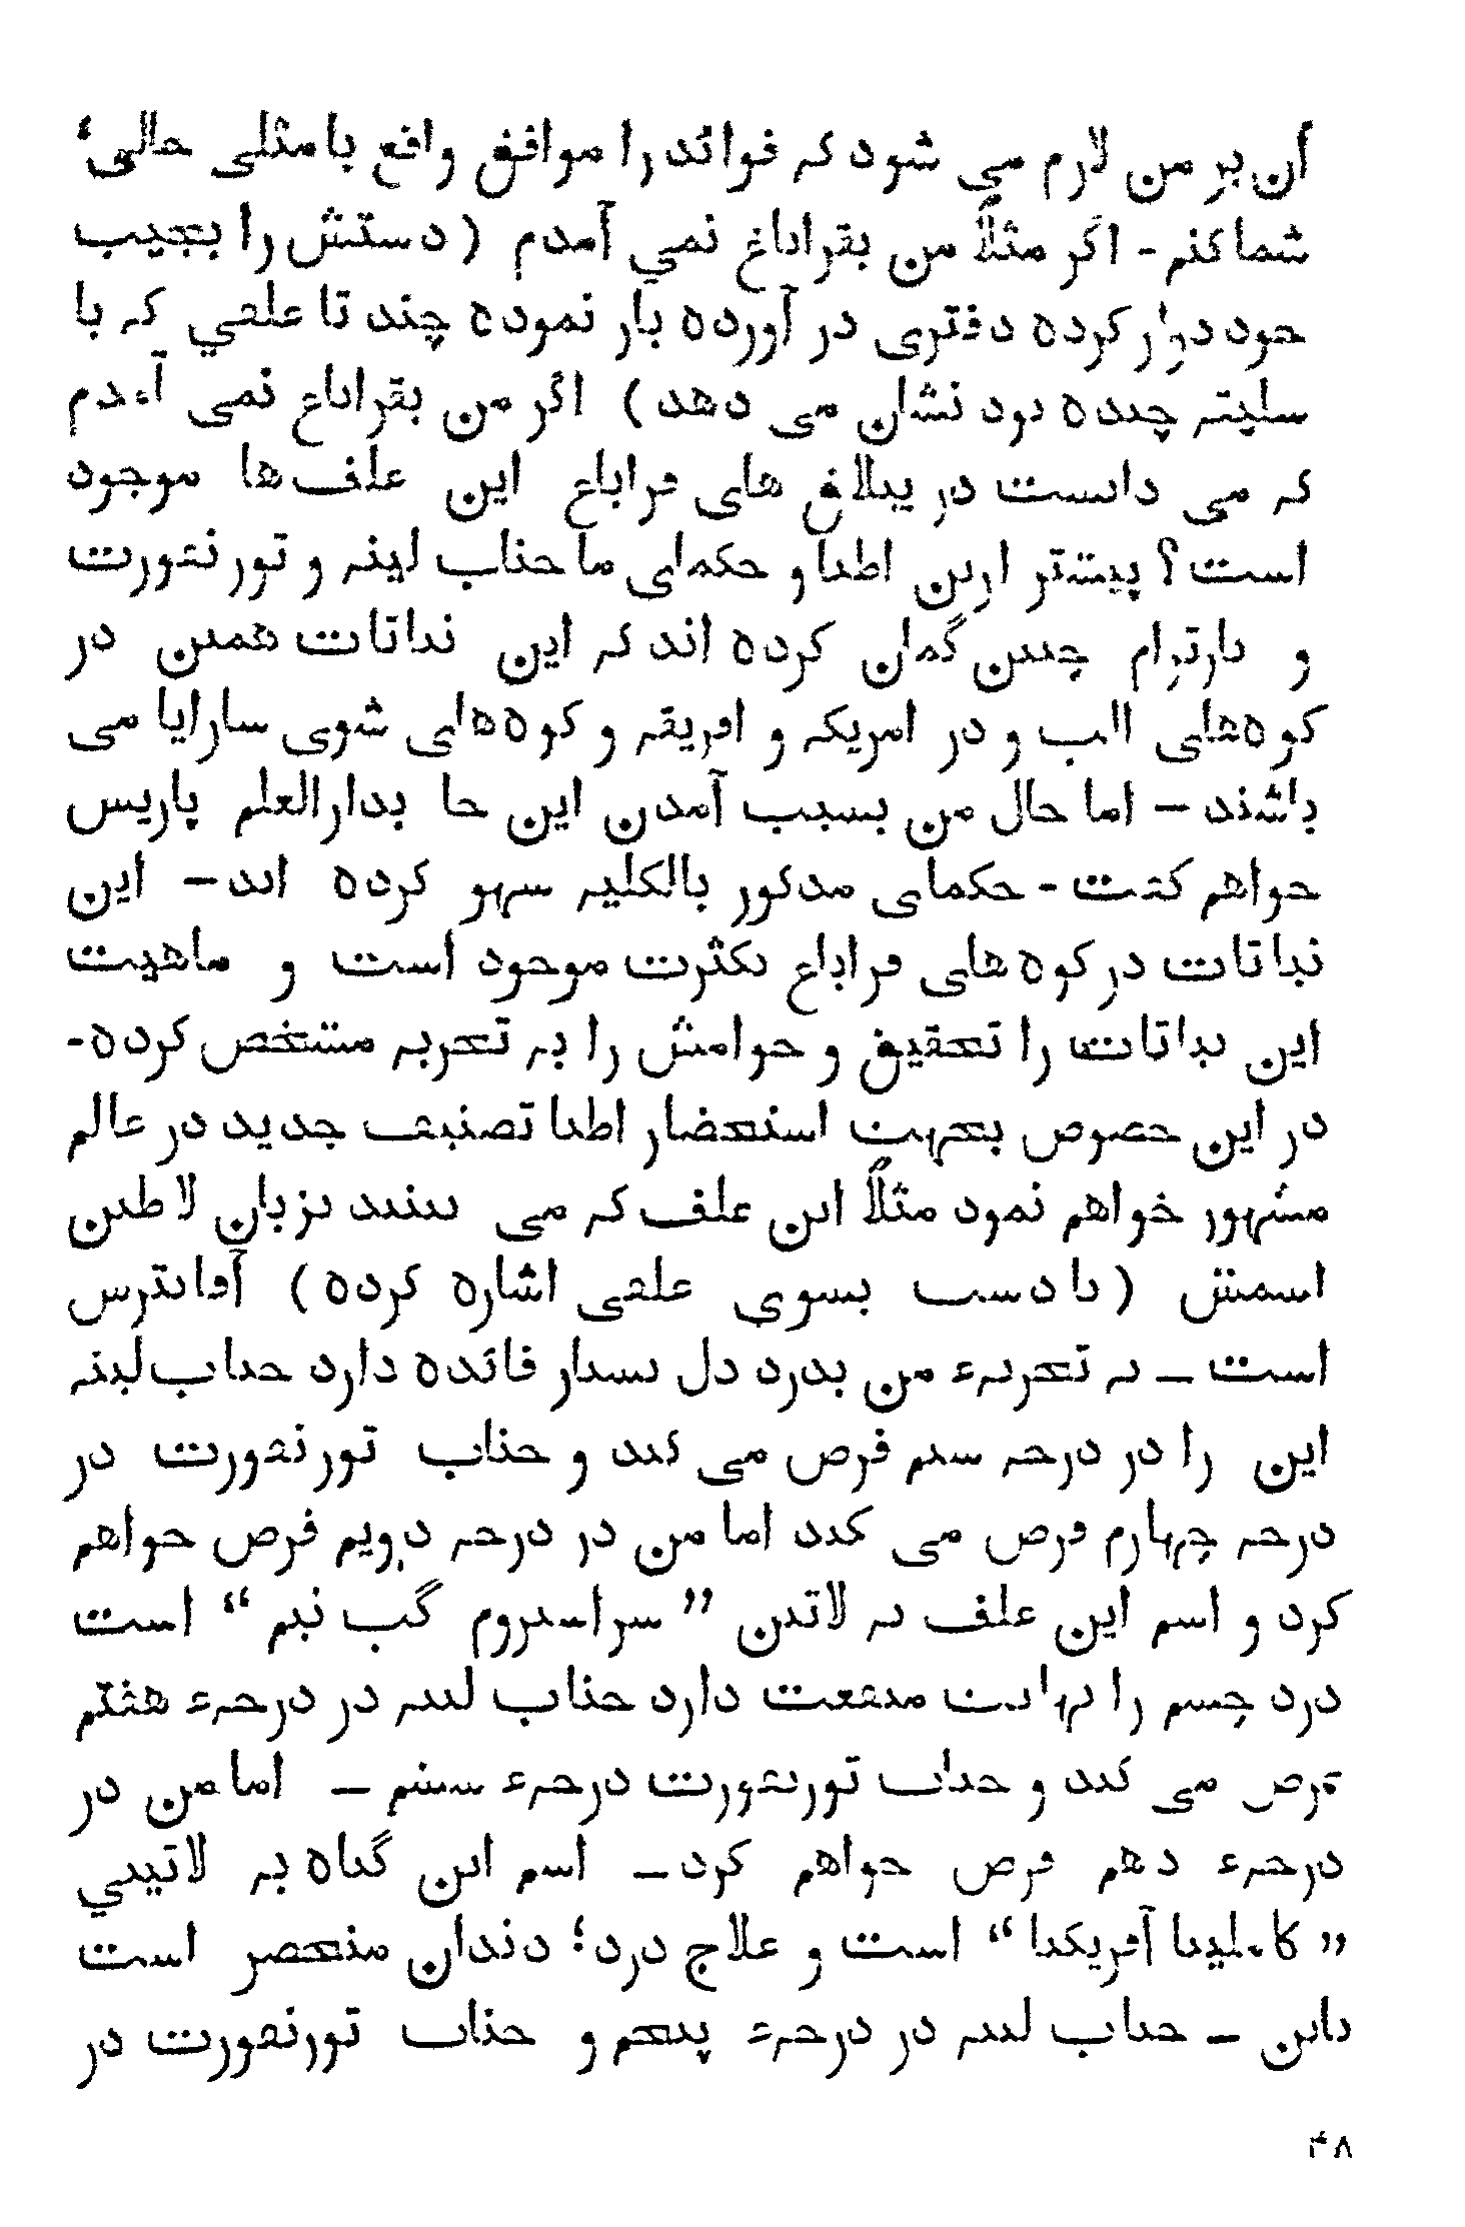 آن بر من لازم می شود که فوائد را موافق واقع با مثلی حالیء
شما کنم - اگر مثلاً من بقراباغ نمی آمدم (دستش را بجیب
خود دراز کرده دفتری در آورده باز نموده چند تا علفی که با
سلیقه چیده بود نشان می دهد) اگر من بقراباغ نمی آمدم
که می دانست در ییلاغ های قراباغ این علف ها موجود
است؟ پیشتر ازین اطبا و حکمای ما جناب لینه و تورنفورت
و بارترام چنین گمان کرده اند که این نباتات همین در
کوه‌های الپ و در امریکه و افریقه و کوه‌های شوی سارایا می
باشند – اما حال من بسبب آمدن این جا بدارالعلم پاریس
خواهم گفت - حکمای مذکور بالکلیه سهو کرده اند – این
نباتات در کوه های قراباغ بکثرت موجود است و ماهیت
این نباتات را تحقیق و خوامش را به تجربه مشخص کرده-
در این خصوص بجهت استحضار اطبا تصنیف جدید در عالم
مشهور خواهم نمود مثلاً این علف که می بینید بزبان لاطین
اسمش (با دست بسوی علفی اشاره کرده) آقانترس
است – به تجربهء من بدرد دل بسیار فائده دارد جناب لینه
این را در درجه سیم فرض می کند و جناب تورنفورت در
درجه چهارم فرض می کند اما من در درجه دویم فرض خواهم
کرد و اسم این علف به لاتین ” سراسدروم گب نیم “ است
درد چسم را نهایت منفعت دارد جناب لینه در درجهء هفتم
فرض می کند و جناب تورنفورت درجهء ششم – اما من در
درجهء دهم فرض خواهم کرد – اسم این گیاه به لاتینی
” کاملینا آفریکنا “ است و علاج درد؛ دندان منحصر است
باین – جناب لینه در درجهء پنجم و جناب تورنفورت در
۴۸